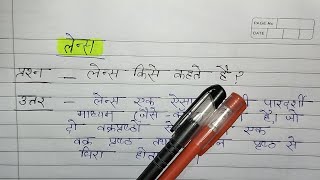 PAGE NO.
DATE
लेन्स
प्रश्न _ लेन्स किसे कहते है?
उत्तर _ लेन्स एक ऐसा पारदर्शी
माध्यम (जैसे है। जो
दो वक्रपृष्ठों एक
वक्र पृष्ठ पृष्ठ से
घिरा